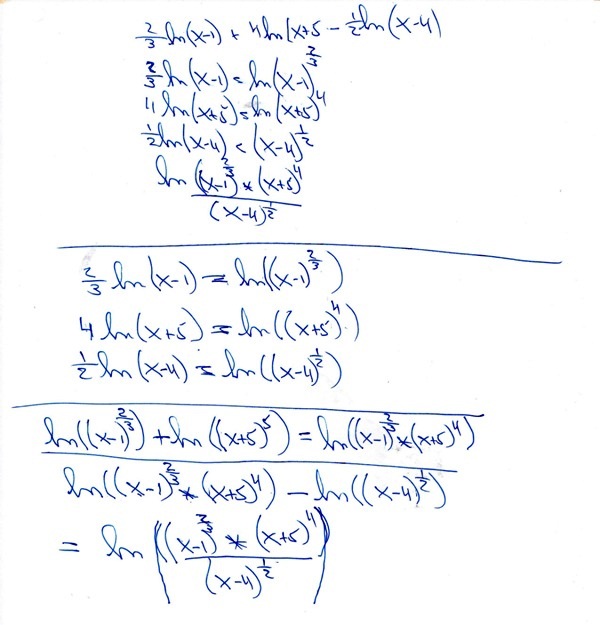 2/3 ln(x-1) + 4 ln(x+5 - 1/2 ln(x-4)
2/3 ln(x-1) = ln(x-1)^2/3
4 ln(x+5) = ln(x+5)^4
1/2 ln(x-4) = (x-4)^1/2
ln (x-1)^2/3 * (x+5)^4
(x-4)^1/2
2/3 ln(x-1) = ln((x-1)^2/3)
4 ln(x+5) = ln((x+5)^4)
1/2 ln(x-4) = ln((x-4)^1/2)
ln((x-1)^2/3) + ln((x+5)^5) = ln((x-1)^2/3 * (x+5)^4)
ln((x-1)^2/3 * (x+5)^4) - ln((x-4)^1/2)
= ln ((x-1)^2/3 * (x+5)^4)
(x-4)^1/2